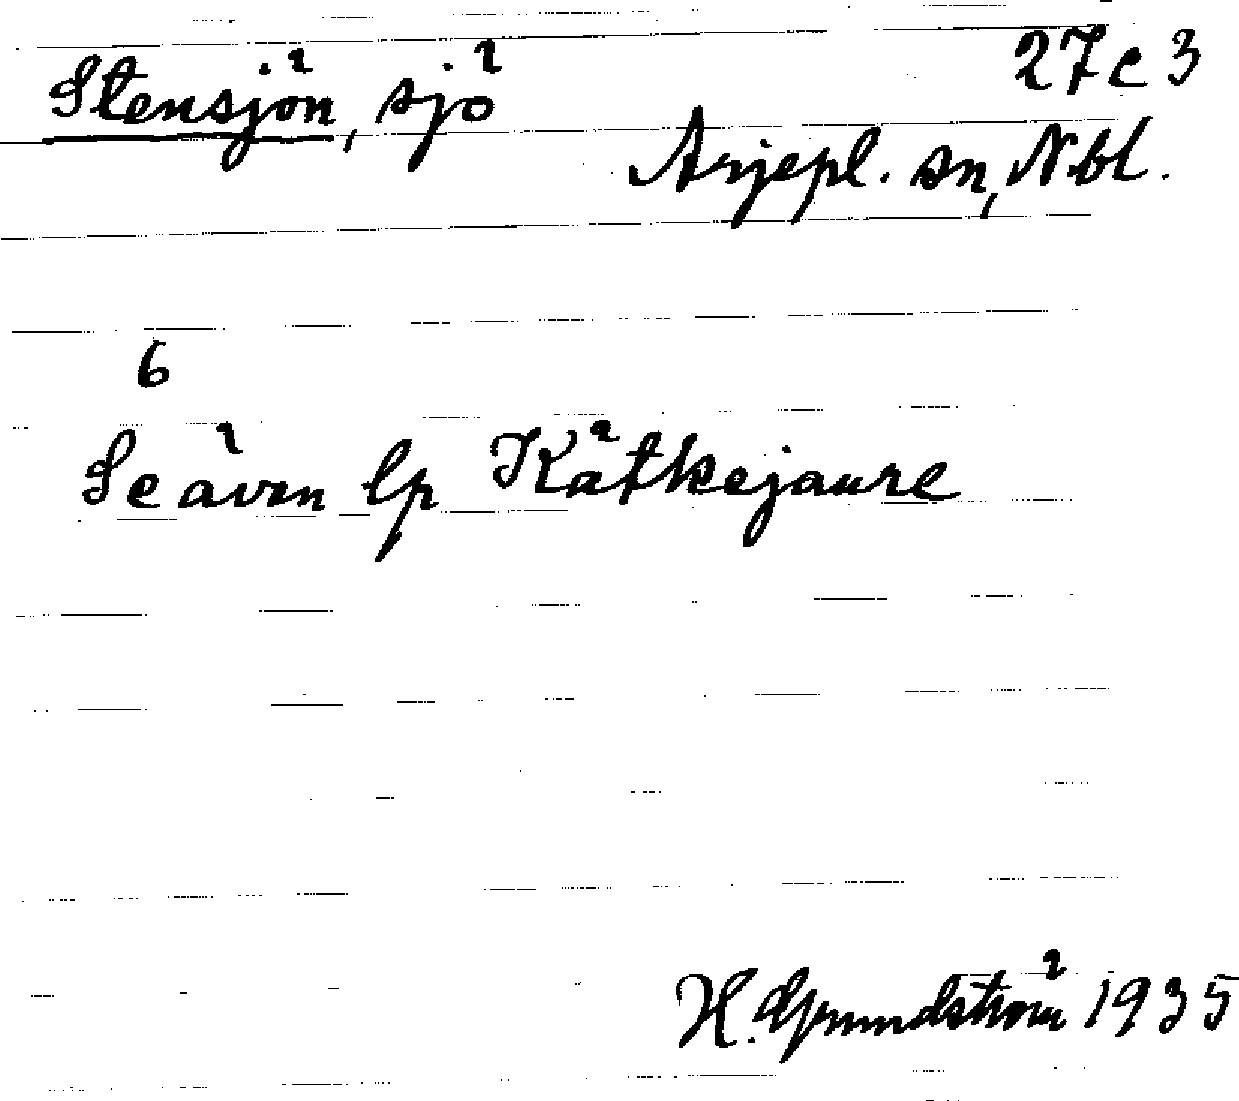 Stensjön, sjö
27c3
Arjepl. sn, Nbl.
6
Se även lp Kätkejaure
H. Grundström 1935